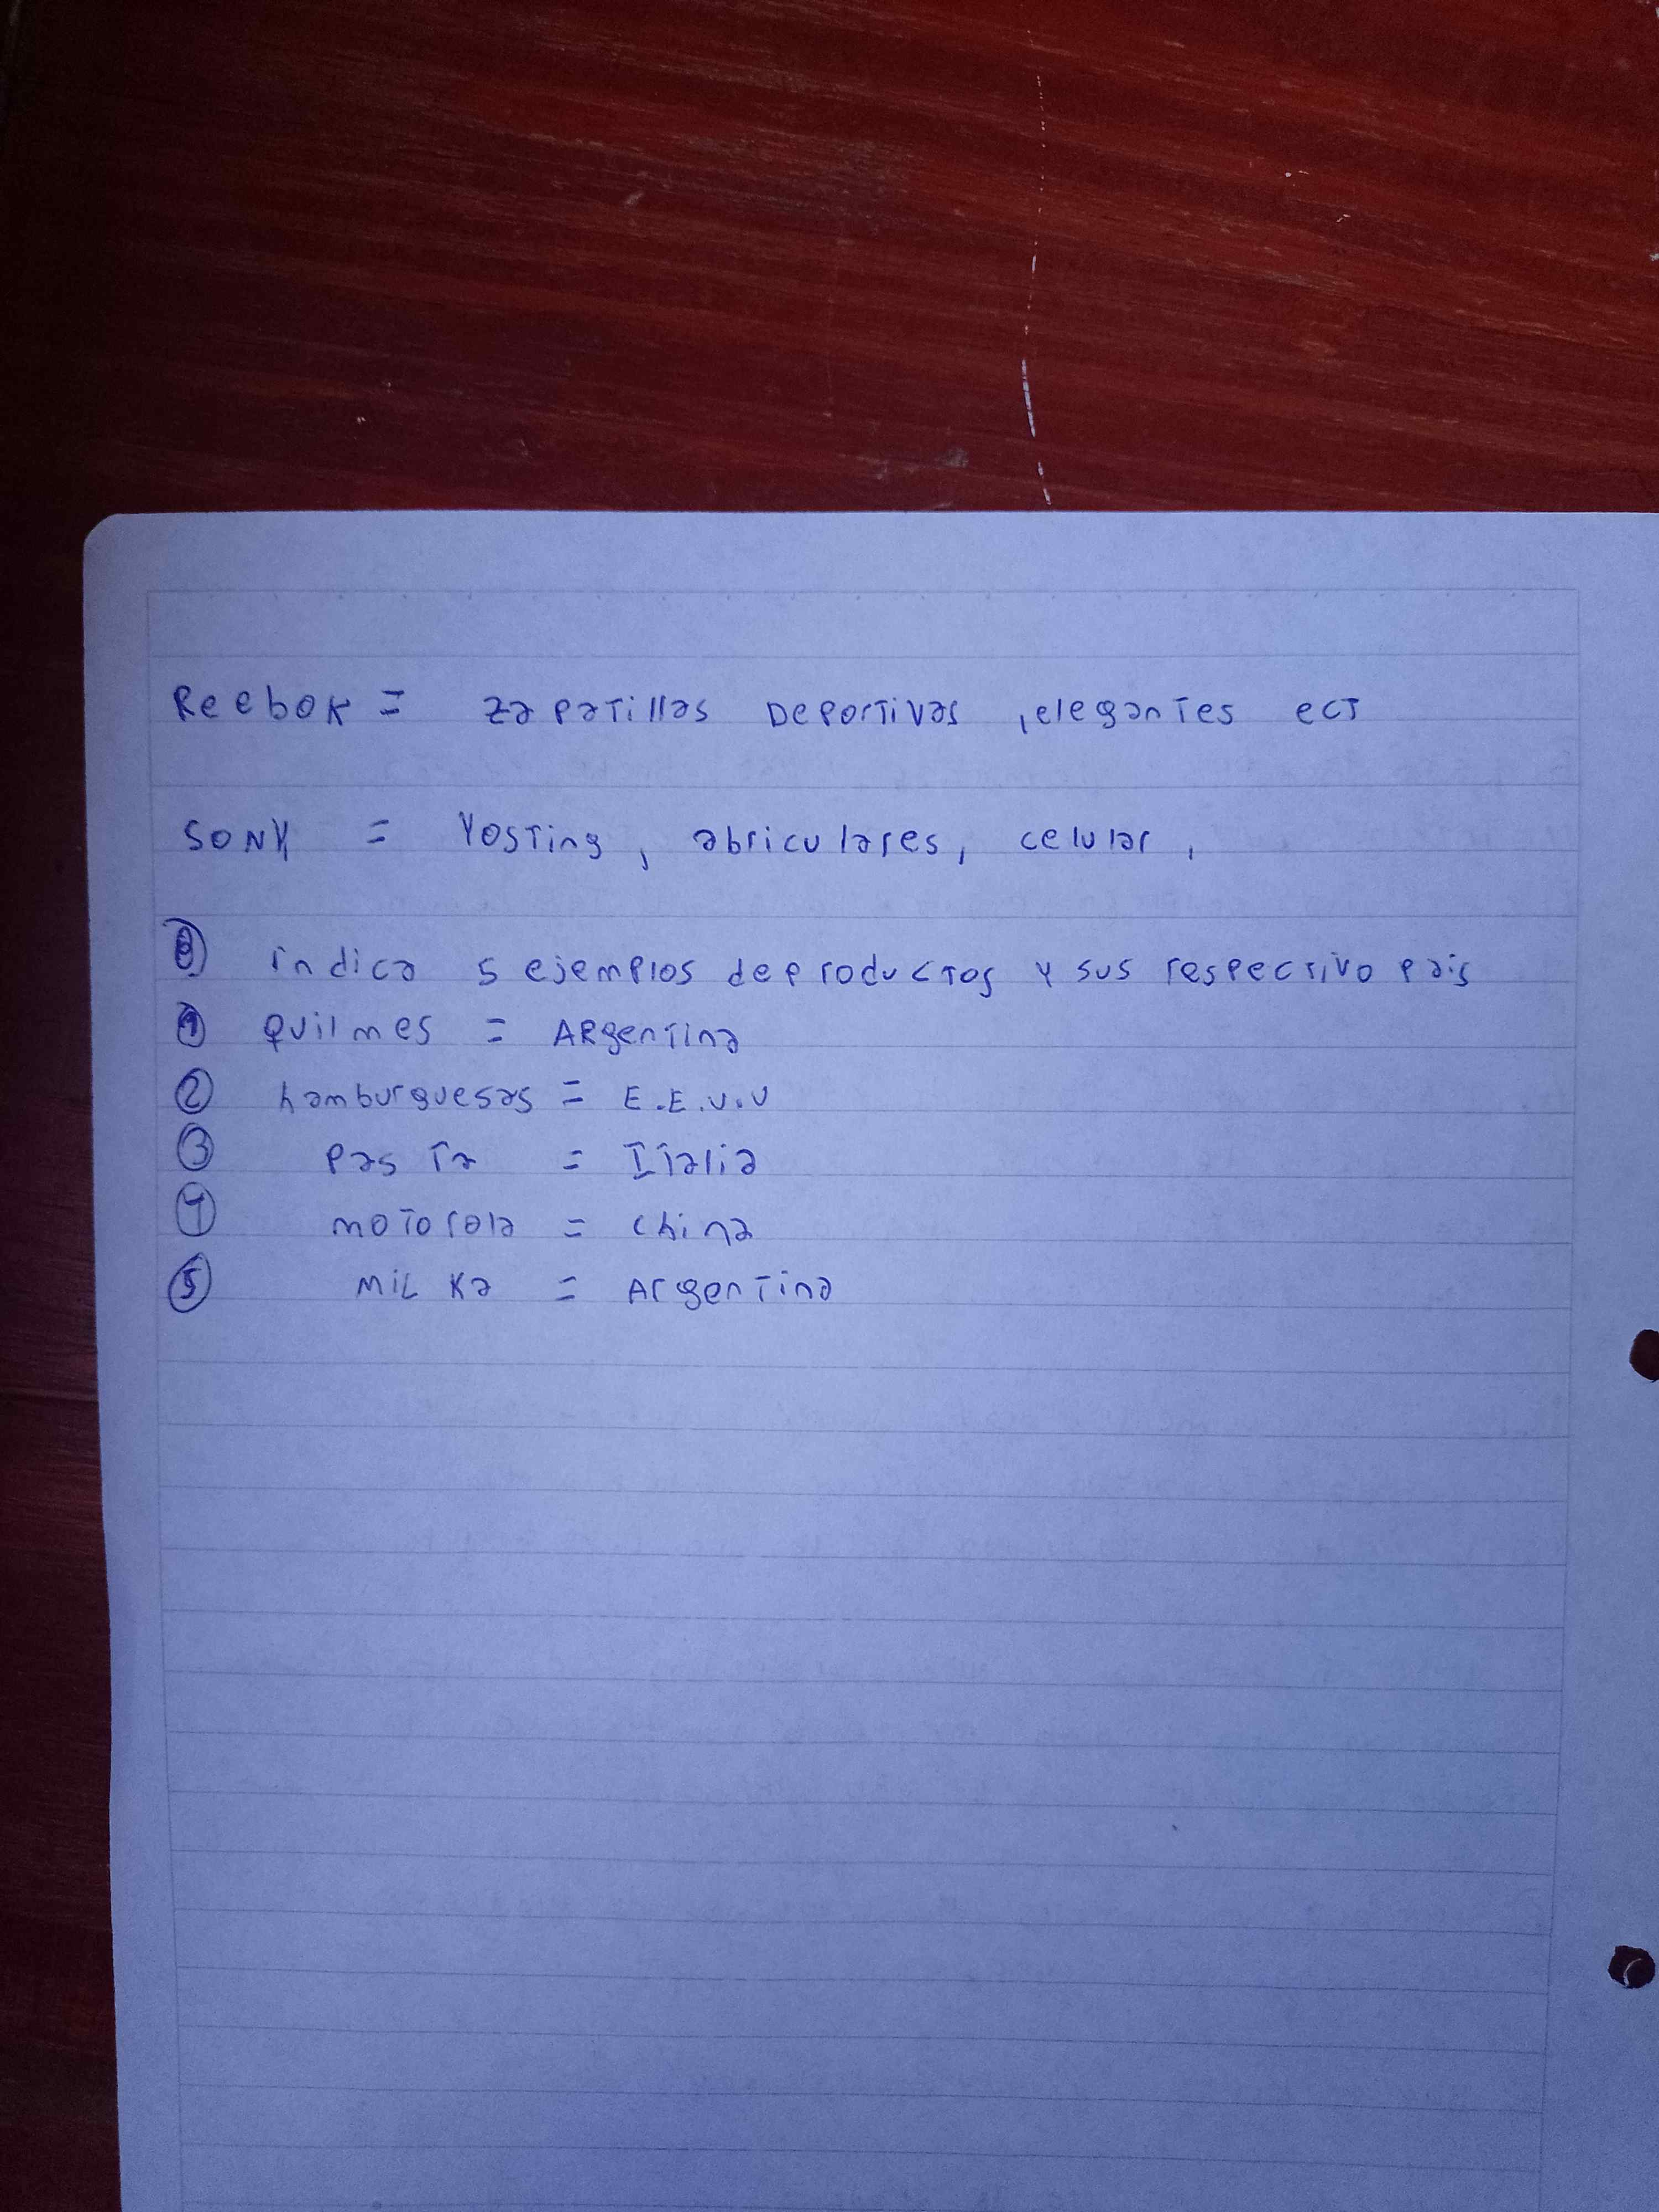 Reebok = zapatillas Deportivas , elegantes ect
SONY = Yosting, abriculares, celular,
⑧ indica 5 ejemplos de productos y sus respectivo pais
① quilmes = ARgentina
② hamburguesas = E.E.U.U
③ pasta = Italia
④ motorola = china
⑤ MILKa = Argentina